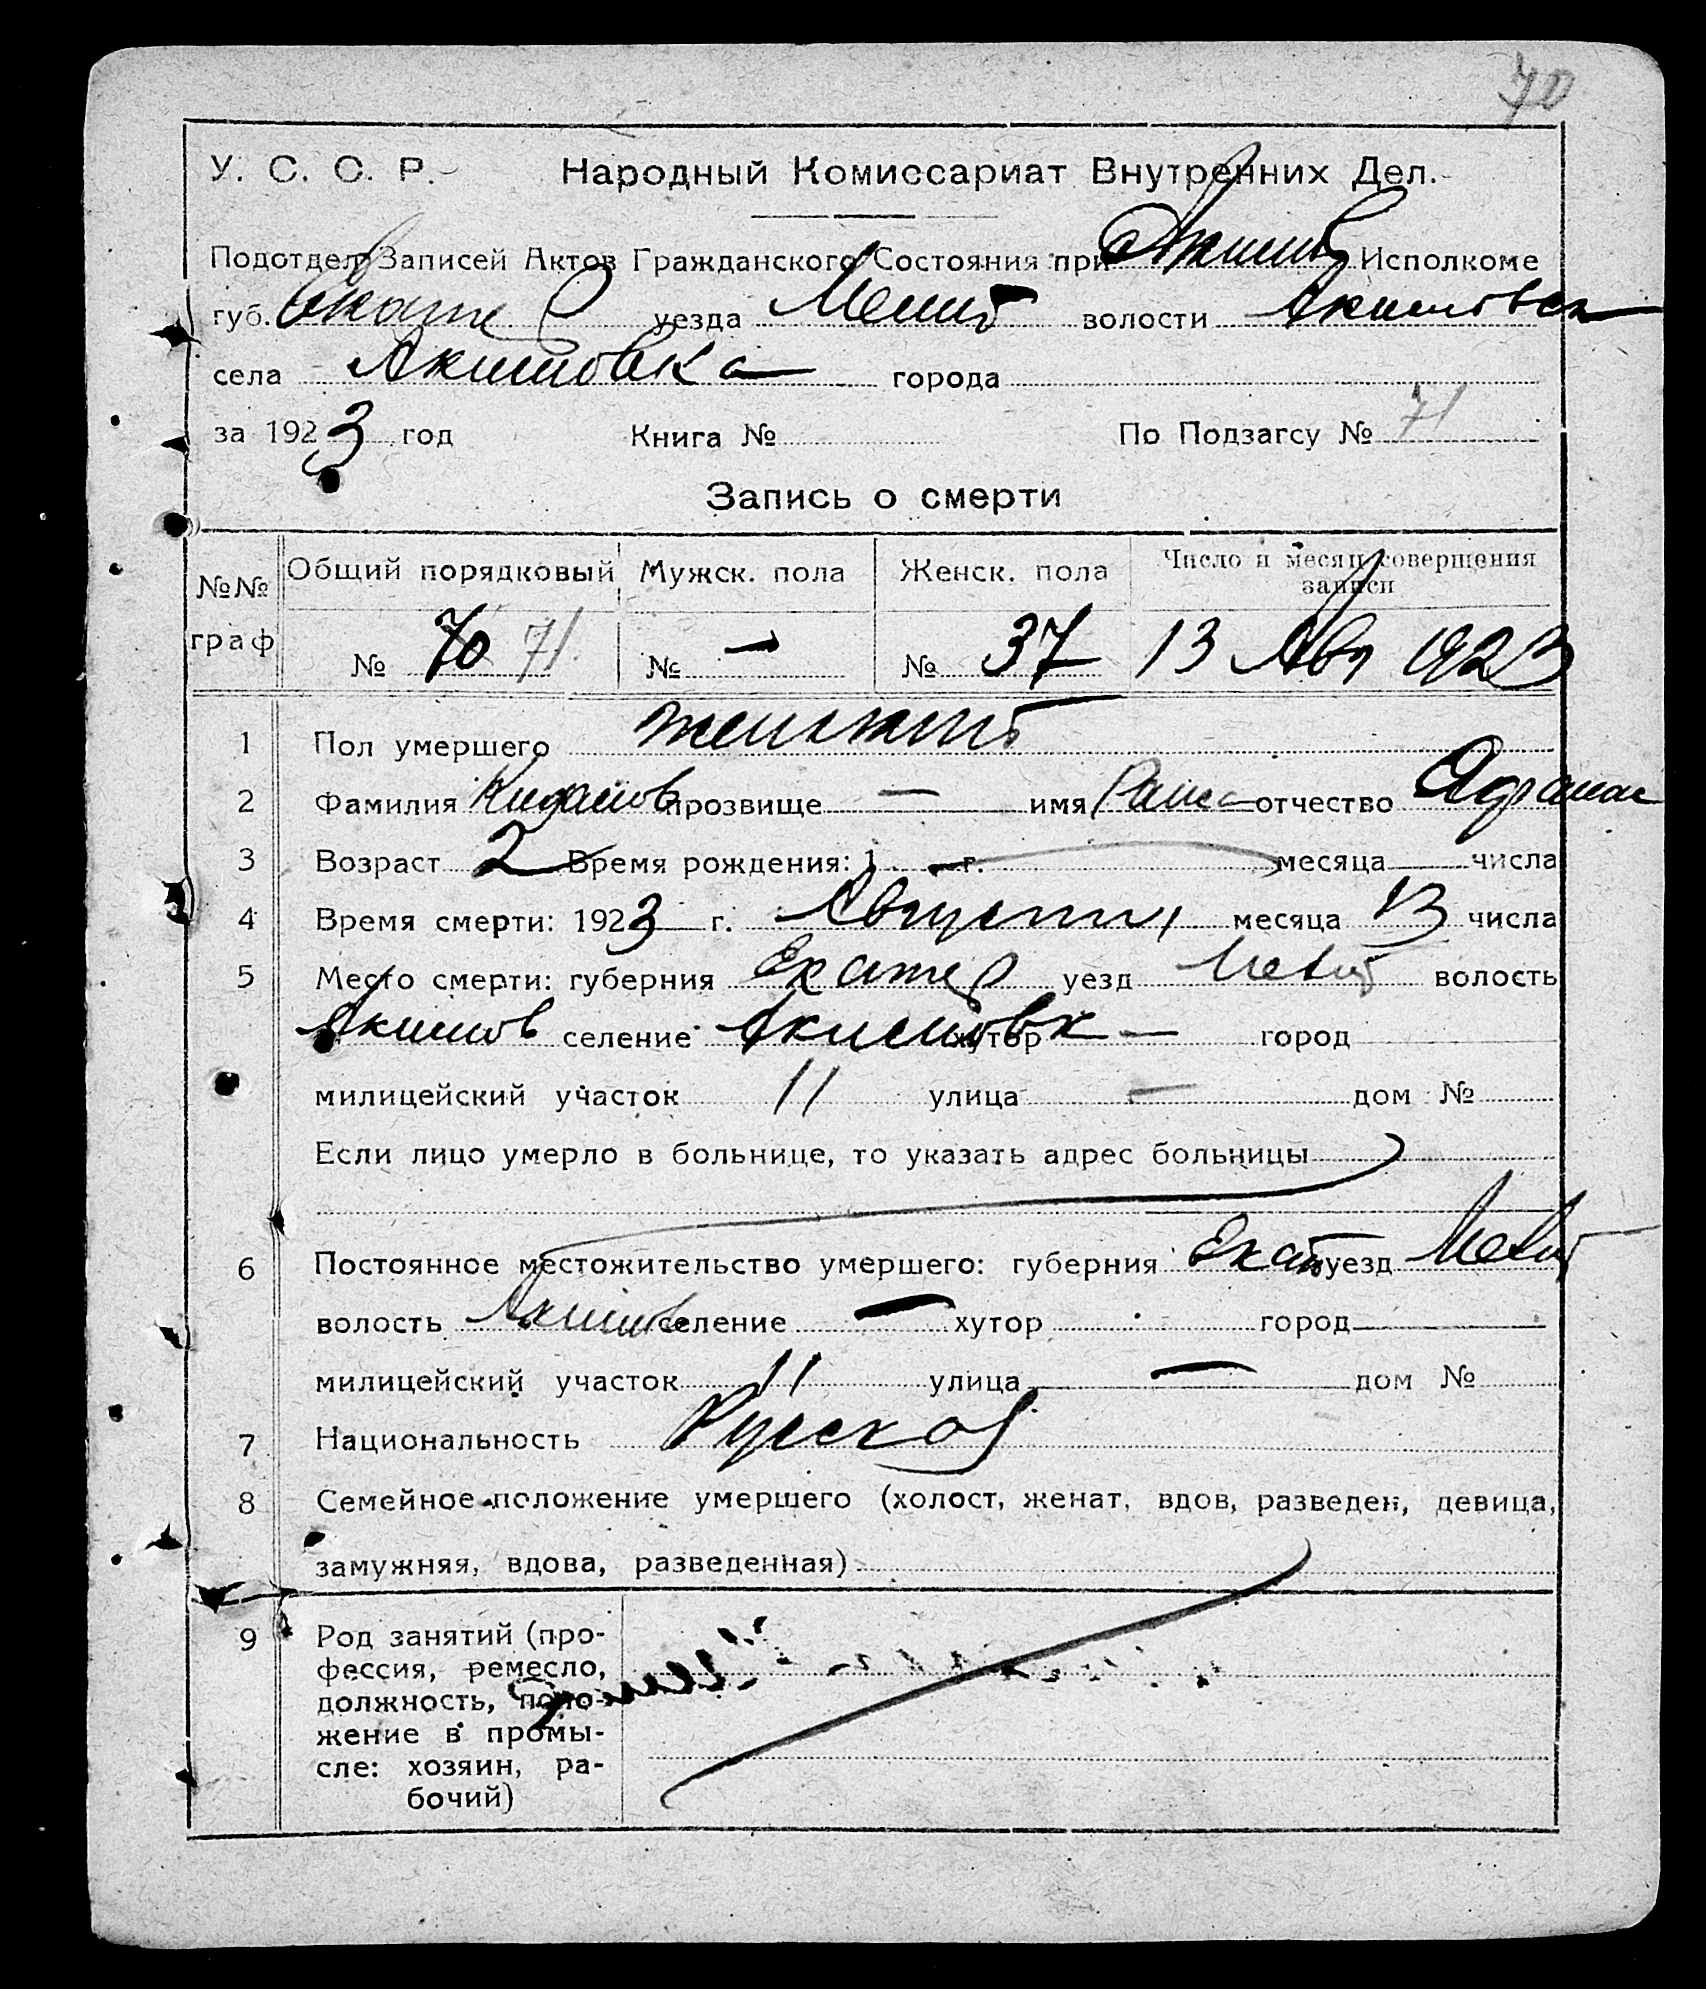 70
У. С. С. Р. Народный Комиссариат Внутренних Дел.
Подотдел Записей Актов Гражданского Состояния при Акимов Исполкоме
губ. Екате уезда Мелит волости Акимовск
села Акимовка города
за 1923 год Книга № По Подзагсу № 71
Запись о смерти
№№ граф Общий порядковый Мужск. пола Женск. пола Число и месяц совершения записи
№ 70 71 № — № 37 13 Авг 1923
1 Пол умершего женский
2 Фамилия прозвище — имя Раиса отчество
3 Возраст 2 Время рождения: 1 — г. месяца числа
4 Время смерти: 1923 г. Августа месяца 13 числа
5 Место смерти: губерния Екатер уезд Мелит волость
Акимов селение Акимовк хутор — город
милицейский участок 11 улица — дом №
Если лицо умерло в больнице, то указать адрес больницы
6 Постоянное местожительство умершего: губерния Екат уезд Мелит
волость Акимов селение — хутор город
милицейский участок 11 улица — дом №
7 Национальность Русской
8 Семейное положение умершего (холост, женат, вдов, разведен, девица,
замужняя, вдова, разведенная)
9 Род занятий (про-
фессия, ремесло,
должность, поло-
жение в промы-
сле: хозяин, ра-
бочий)